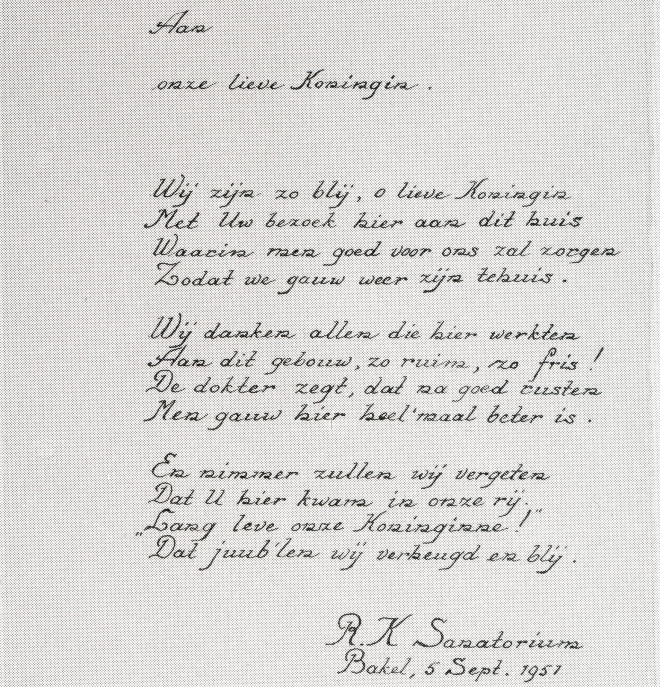 Aan
onze lieve Koningin.
Wij zijn zo blij, o lieve Koningin
Met Uw bezoek hier aan dit huis
Waarin men goed voor ons zal zorgen
Zodat we gauw weer zijn tehuis.
Wij danken allen die hier werkten
Aan dit gebouw, zo ruim, zo fris!
De dokter zegt, dat na goed rusten
Men gauw hier heel'maal beter is.
En nimmer zullen wij vergeten
Dat U hier kwam in onze rij.
"Lang leve onze Koninginne!"
Dat juub'len wij verheugd en blij.
R.K Sanatorium
Bakel, 5 Sept. 1951